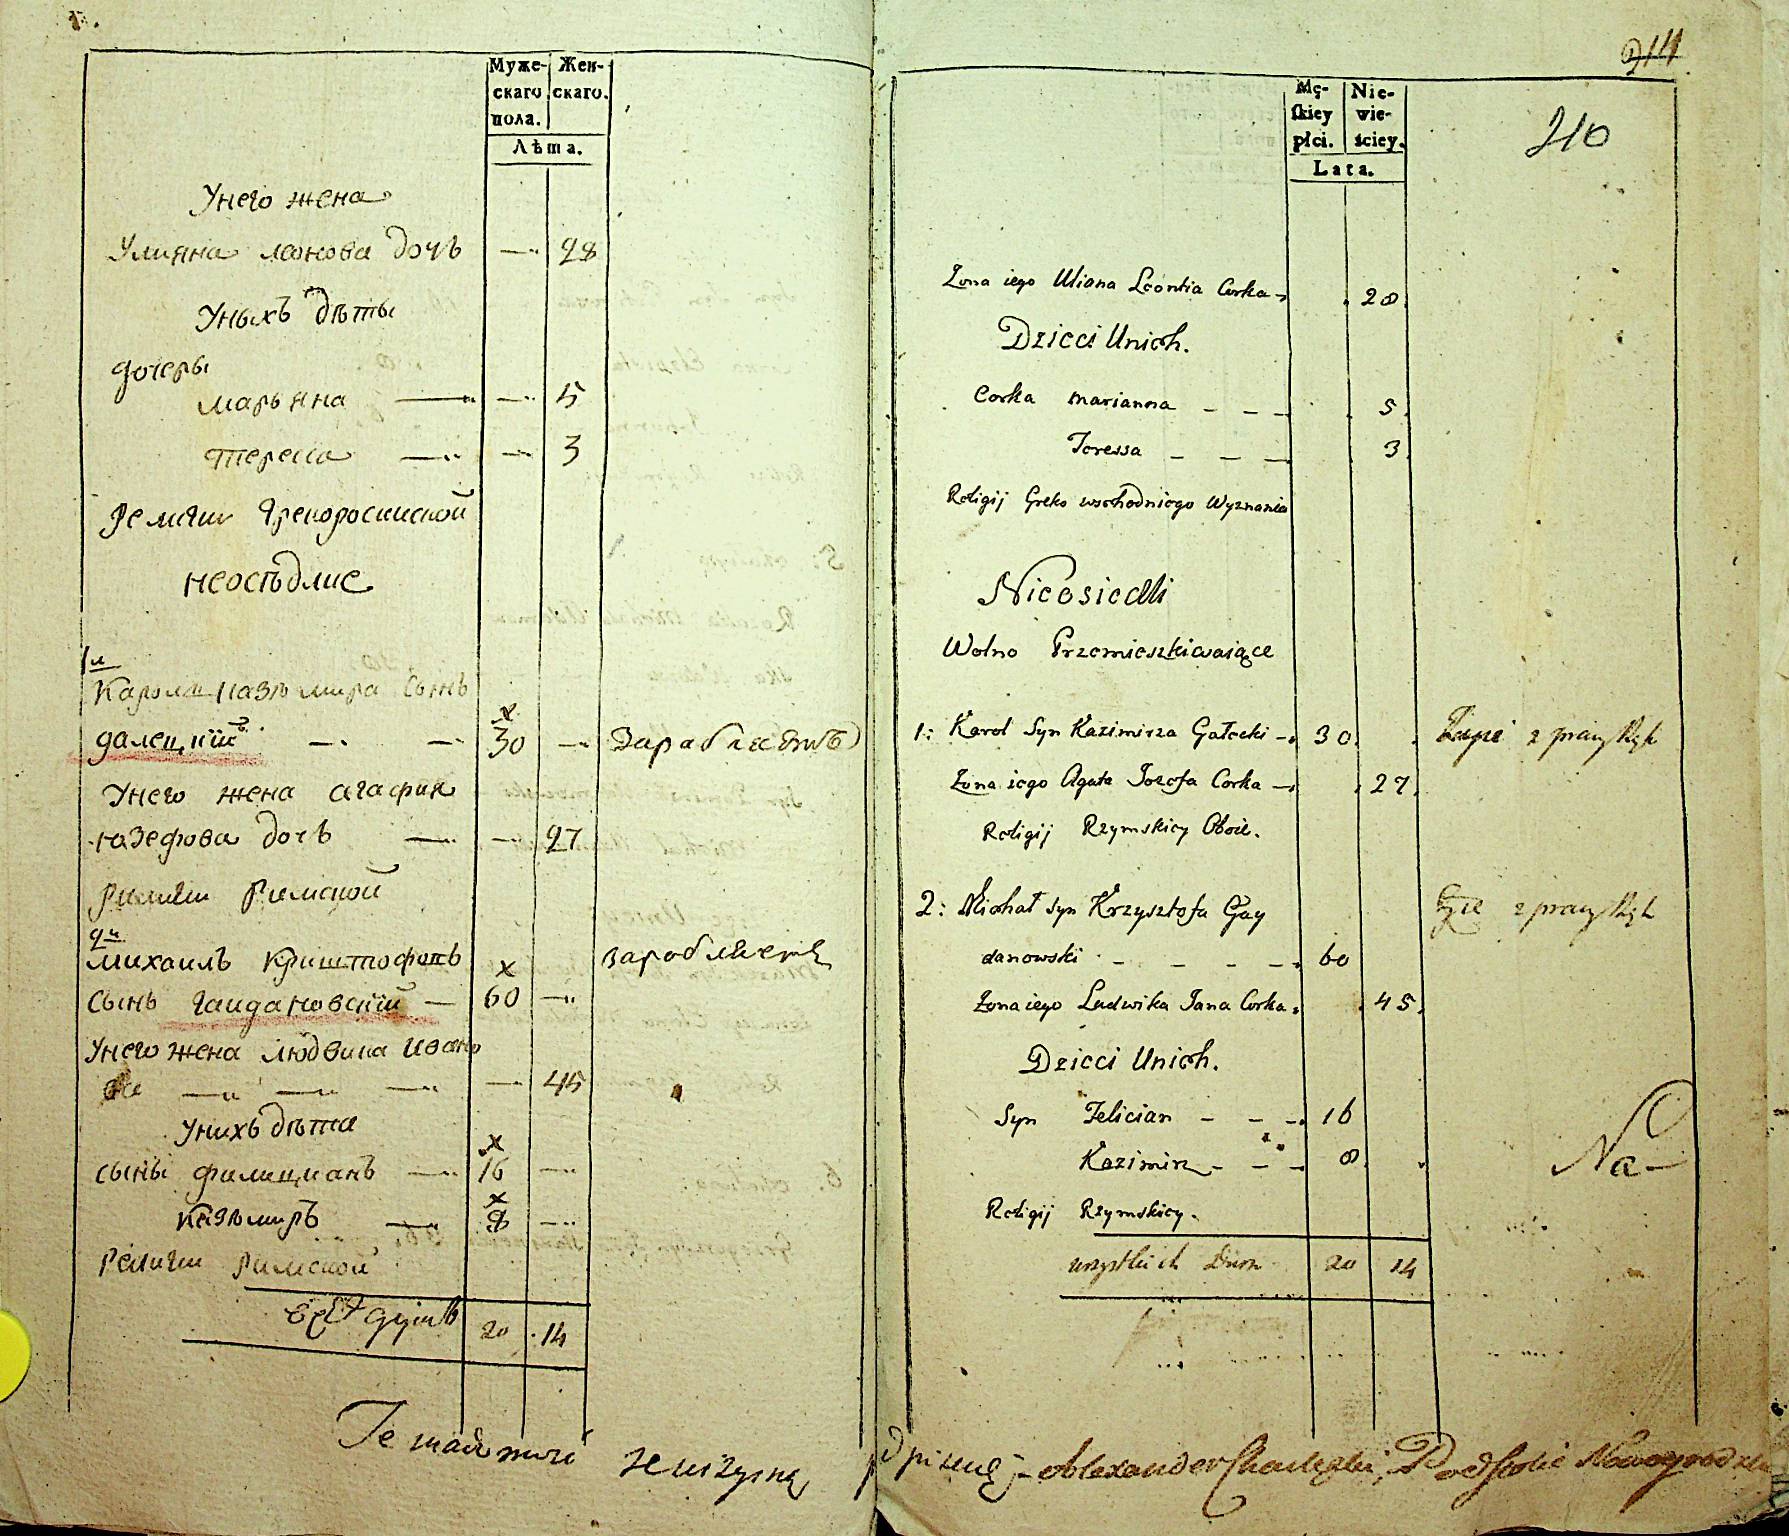 Муже- Жен-
скаго скаго.
пола.
Лѣта.
Унего жена
Улияна леонова дочь — 28
Уныхъ дѣты
дочеры
марьяна — — 5
тереса — — 3
Религии Грекоросииской
неосѣдлие
1й
Кароль Казѣмира Сынъ
галецкий — — 30 —
Унего жена агафия
юзефова дочь — — 27
религи Римской
2й
михаилъ криштофовъ
сынъ гаидановский — 60 —
Унего жена людвика ивано
ва — — — — 45
Унихъ дѣти
сыны филицианъ — 16 —
казѣмиръ — 8 —
религи римской
всѣхъ душъ 20 14
214
210
Mę- Nie-
skiey wie-
płci. ściey.
Lata.
Zona iego Uliana Leontia Corka 28
Dzieci Unich.
Corka Marianna - - - 5
Teressa - - - 3
Religij Greko wschodniego Wyznania
Nieosiedli
Wolno Przemieszkiwaiące
1: Karol Syn Kazimirza Gałecki - 30 z pracy Rąk
Zona iego Agata Jozefa Corka - 27
Religij Rzymskiey Oboie.
2: Michał Syn Krzysztofa Gay z pracy Rąk
danowski - - - - 60
Zona iego Ludwika Jana Corka 45
Dzieci Unich.
Syn Felician - - - 16
Kazimirz - - - 8
Na-
Religij Rzymskiey.
wszystkich Dusz 20 14
Alexander Podsędek Nowogrodzki